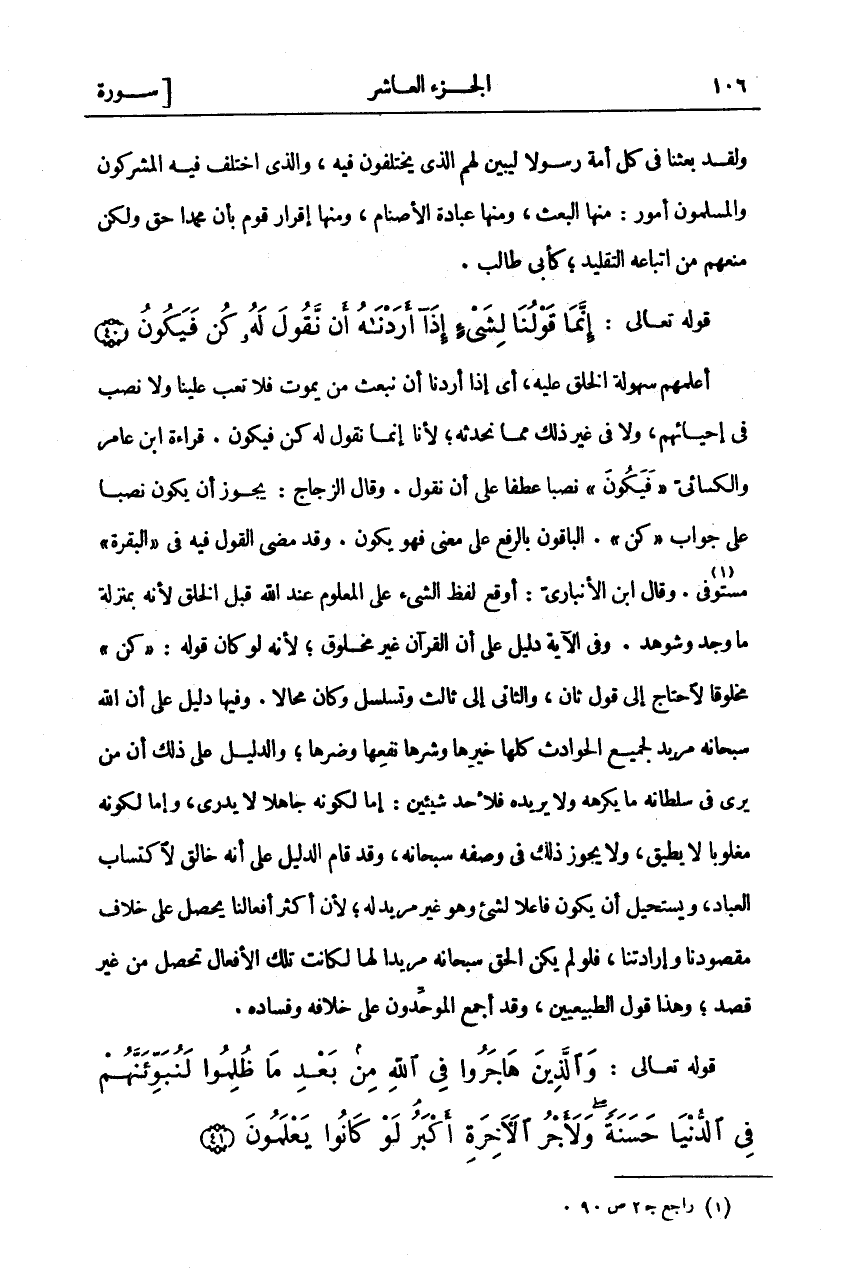 ١٠٦ الجزء العاشر [ سورة
ولقد بعثنا فى كل أمة رسولا ليبين لهم الذى يختلفون فيه ، والذى اختلف فيه المشركون
والمسلمون أمور : منها البعث ، ومنها عبادة الأصنام ، ومنها إقرار قوم بأن محمدا حق ولكن
منعهم من اتباعه التقليد ؛ كأبى طالب .
قوله تعالى : إِنَّمَا قَوْلُنَا لِشَىْءٍ إِذَآ أَرَدْنَـٰهُ أَن نَّقُولَ لَهُۥ كُن فَيَكُونُ ﴿٤٠﴾
أعلمهم سهولة الخلق عليه، أى إذا أردنا أن نبعث من يموت فلا تعب علينا ولا نصب
فى إحيائهم، ولا فى غير ذلك مما نحدثه؛ لأنا إنما نقول له كن فيكون . قراءة ابن عامر
والكسائىّ « فَيَكُونَ » نصبا عطفا على أن نقول . وقال الزجاج : يجوز أن يكون نصبا
على جواب « كن » . الباقون بالرفع على معنى فهو يكون . وقد مضى القول فيه فى « البقرة »
مستوفى (١) . وقال ابن الأنبارىّ : أوقع لفظ الشىء على المعلوم عند الله قبل الخلق لأنه بمنزلة
ما وجد وشوهد . وفى الآية دليل على أن القرآن غير مخلوق ؛ لأنه لو كان قوله : « كن »
مخلوقا لاحتاج إلى قول ثان ، والثانى إلى ثالث وتسلسل وكان محالا . وفيها دليل على أن الله
سبحانه مريد لجميع الحوادث كلها خيرها وشرها نفعها وضرها ؛ والدليل على ذلك أن من
يرى فى سلطانه ما يكرهه ولا يريده فلأحد شيئين : إما لكونه جاهلا لا يدرى، وإما لكونه
مغلوبا لا يطيق، ولا يجوز ذلك فى وصفه سبحانه، وقد قام الدليل على أنه خالق لاكتساب
العباد، ويستحيل أن يكون فاعلا لشئ وهو غير مريد له ؛ لأن أكثر أفعالنا يحصل على خلاف
مقصودنا وإرادتنا ، فلو لم يكن الحق سبحانه مريدا لها لكانت تلك الأفعال تحصل من غير
قصد ؛ وهذا قول الطبيعيين ، وقد أجمع الموحّدون على خلافه وفساده .
قوله تعالى : وَٱلَّذِينَ هَاجَرُوا فِى ٱللَّهِ مِنۢ بَعْدِ مَا ظُلِمُوا لَنُبَوِّئَنَّهُمْ
فِى ٱلدُّنْيَا حَسَنَةً ۖ وَلَأَجْرُ ٱلْآخِرَةِ أَكْبَرُ لَوْ كَانُوا يَعْلَمُونَ ﴿٤١﴾
(١) راجع جـ ٢ ص ٩٠ .